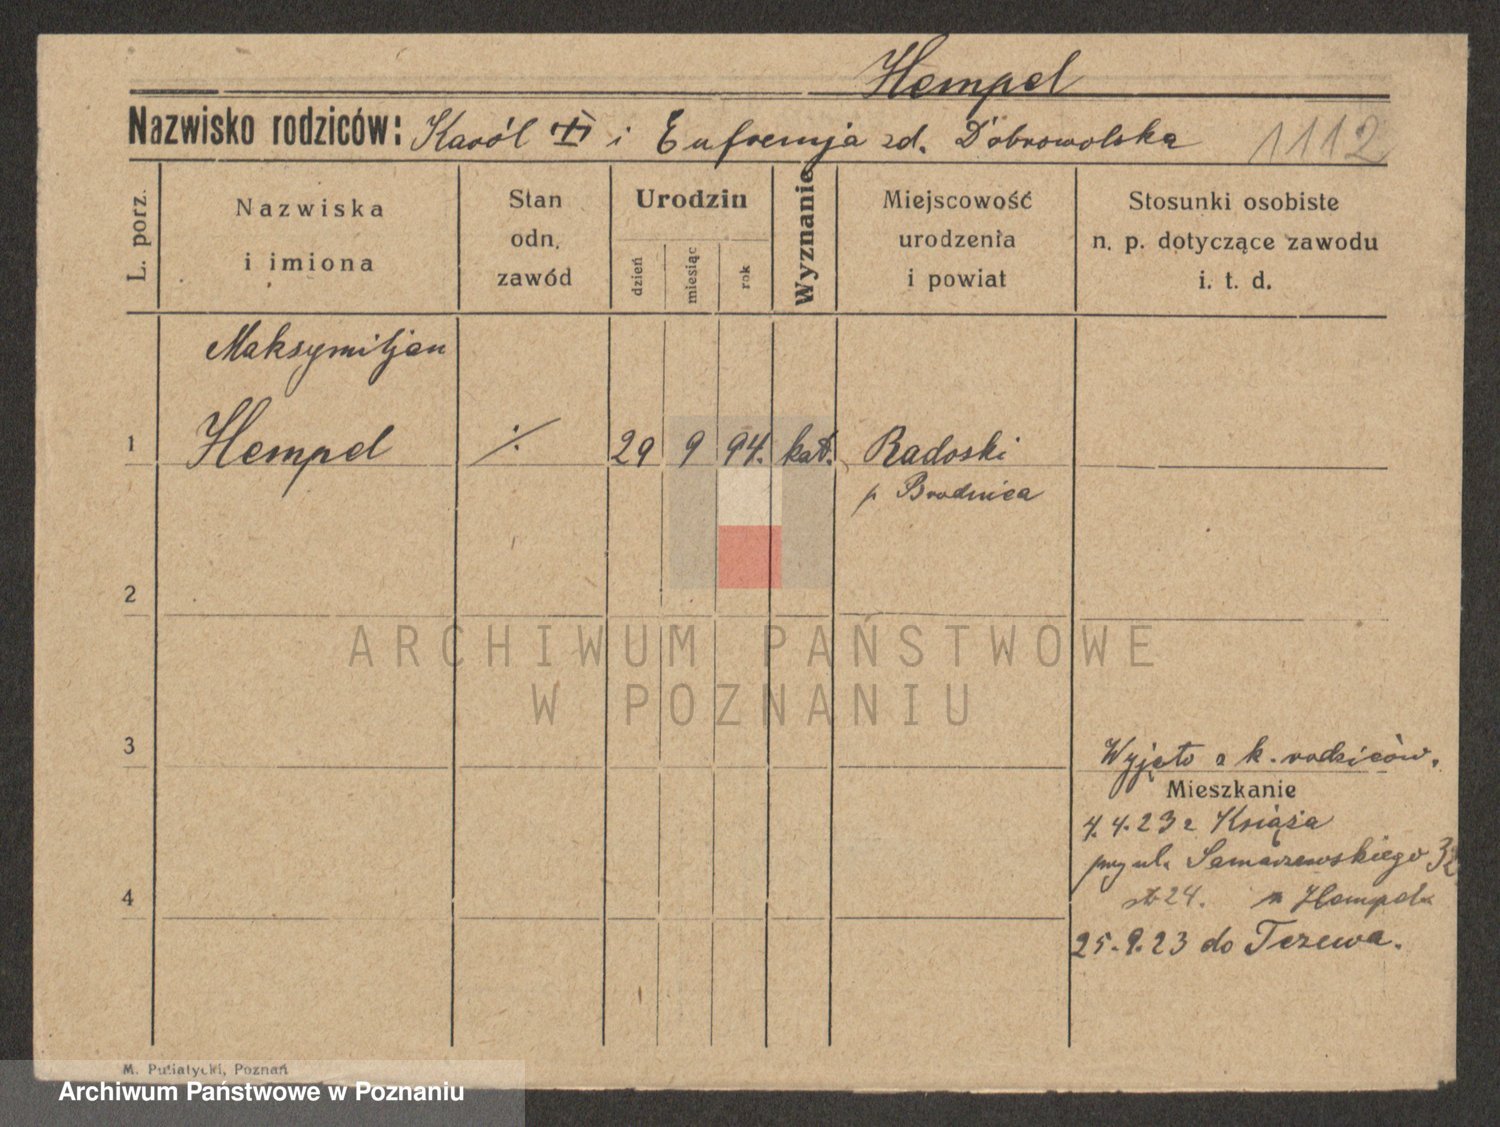 Hempel
Nazwisko rodziców: Karól i Eufremja zd. Dobrowolska 1112
L. porz.
Nazwiska
i imiona
Stan
odn.
zawód
Urodzin
dzień
miesiąc
rok
Wyznanie
Miejscowość
urodzenia
i powiat
Stosunki osobiste
n. p. dotyczące zawodu
i. t. d.
Maksymiljan
1 Hempel ./. 29 9 94. kat. Radoski
p Brodnica
2
ARCHIWUM PAŃSTWOWE
W POZNANIU
3
Wyjęto z k. rodziców.
Mieszkanie
4.4.23 z Książa
przy ul. Samarzewskiego 32
24. Hempel
4
25.9.23 do Tczewa.
M. Putiatycki, Poznań
Archiwum Państwowe w Poznaniu